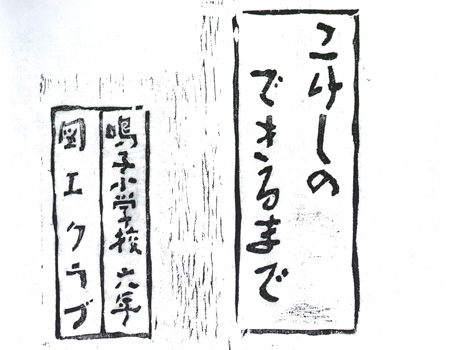 こけしの
できるまで
鳴子小学校六年
図工クラブ